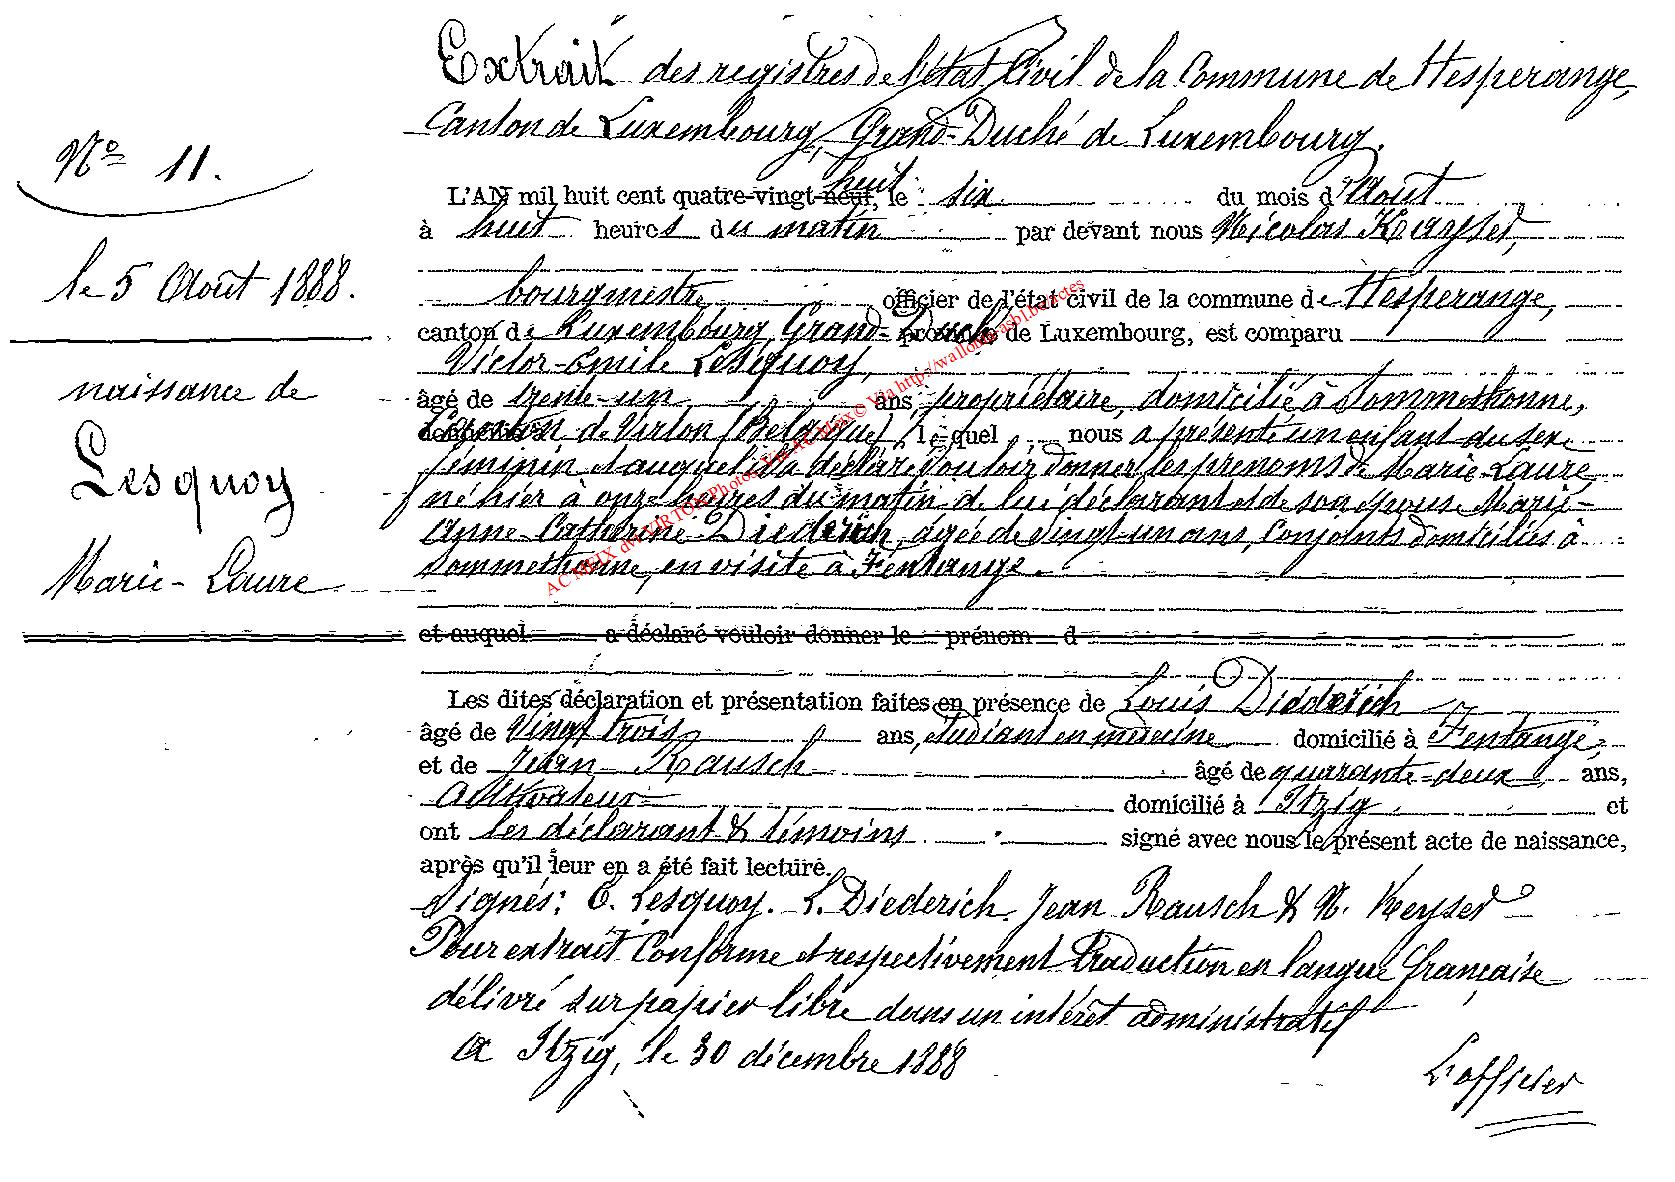 Extrait des registres de l'état Civil de la Commune de Hesperange,
Canton de Luxembourg, Grand-Duché de Luxembourg.
No 11.
L'AN mil huit cent quatre-vingt-neuf, huit le six du mois d'Août
à huit heures du matin par devant nous Nicolas Kayser,
le 5 Août 1888.
bourgmestre officier de l'état civil de la commune de Hesperange,
canton de Luxembourg, Grand-Duché province de Luxembourg, est comparu
Victor-Emile Lesquoy,
naissance de
âgé de trente-un ans, propriétaire, domicilié à Sommethonne,
Canton de Virton (Belgique), lequel nous a présenté un enfant du sexe
Lesquoy
féminin et auquel il a déclaré vouloir donner les prénoms de Marie-Laure
né hier à onze heures du matin de lui déclarant et de son épouse Marie-
Anne-Catherine Diederich, âgée de vingt-un ans, Conjoints domiciliés à
Marie-Laure
Sommethonne, en visite à Fentange.
et auquel a déclaré vouloir donner le prénom d
Les dites déclaration et présentation faites en présence de Louis Didderich
âgé de Vingt trois ans, étudiant en médecine domicilié à Fentange,
et de Jean Rausch âgé de quarante-deux ans,
Cultivateur domicilié à Itzig et
ont les déclarant & témoins signé avec nous le présent acte de naissance,
après qu'il leur en a été fait lecture.
Signés: E. Lesquoy. L. Diederich. Jean Rausch & N. Keyser
Pour extrait Conforme et respectivement traduction en langue française
délivré sur papier libre dans un intérêt administratif
a Itzig, le 30 décembre 1888
L'officier
AC MEIX dvt VIRTON Photos Via AC Meix © Via http://wallonia-asbl.be/actes